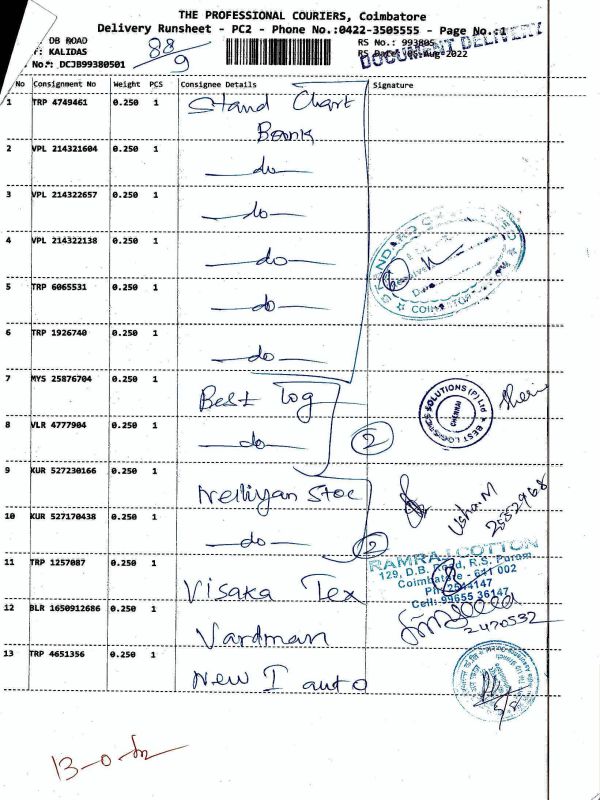 THE PROFESSIONAL COURIERS, Coimbatore
Delivery Runsheet - PC2 - Phone No.:0422-3505555 - Page No.:1
DB ROAD
: KALIDAS
No.: DCJB99380501
88/9
RS No.: 993805
RS Date: 05-Aug-2022
DOCUMENT DELIVERY
No Consignment No Weight PCS Consignee Details Signature
1 TRP 4749461 0.250 1 Stand Chart
Bank
2 VPL 214321604 0.250 1 —do—
3 VPL 214322657 0.250 1 —do—
4 VPL 214322138 0.250 1 —do—
5 TRP 6065531 0.250 1 —do—
6 TRP 1926740 0.250 1 —do—
COIMBATORE
7 MYS 25876704 0.250 1 Best Log
BEST LOGISTICS SOLUTIONS (P) Ltd
CHENNAI
8 VLR 4777904 0.250 1 —do— 2
9 KUR 527230166 0.250 1 Nelliyan Stoc
Usha.M
2552968
10 KUR 527170438 0.250 1 —do— 2
RAMRAJ COTTON
129, D.B. Road, R.S. Puram
Coimbatore - 641 002
Ph: 2544147
Cell: 99655 36147
11 TRP 1257087 0.250 1 Visaka Tex
12 BLR 1650912686 0.250 1 Vardman
2470532
13 TRP 4651356 0.250 1 New I auto
5/8
13-0-